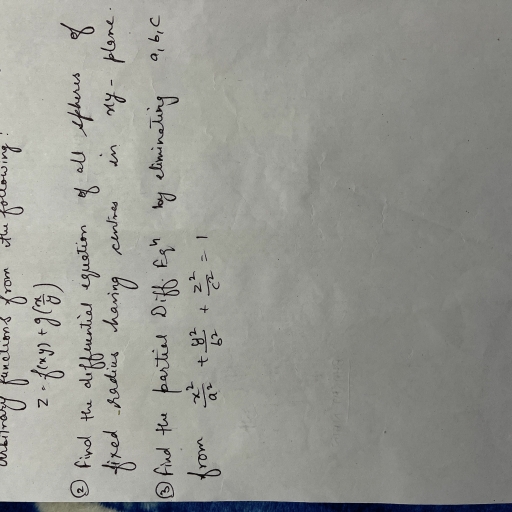 arbitrary functions from the following:
z = f(xy) + g(x/y)
② Find the differential equation of all spheres of
fixed radius having centres in xy - plane.
③ Find the partial Diff. Eqⁿ by eliminating a, b, c
from x²/a² + y²/b² + z²/c² = 1